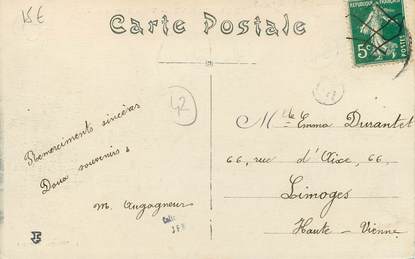 15€
Carte Postale
REPUBLIQUE FRANÇAISE
5c
42
Remerciments sincères
Doux souvenirs
M. Augagneur
Mlle Emma Durantet
66, rue d'Aixe, 66,
Limoges
Haute-Vienne